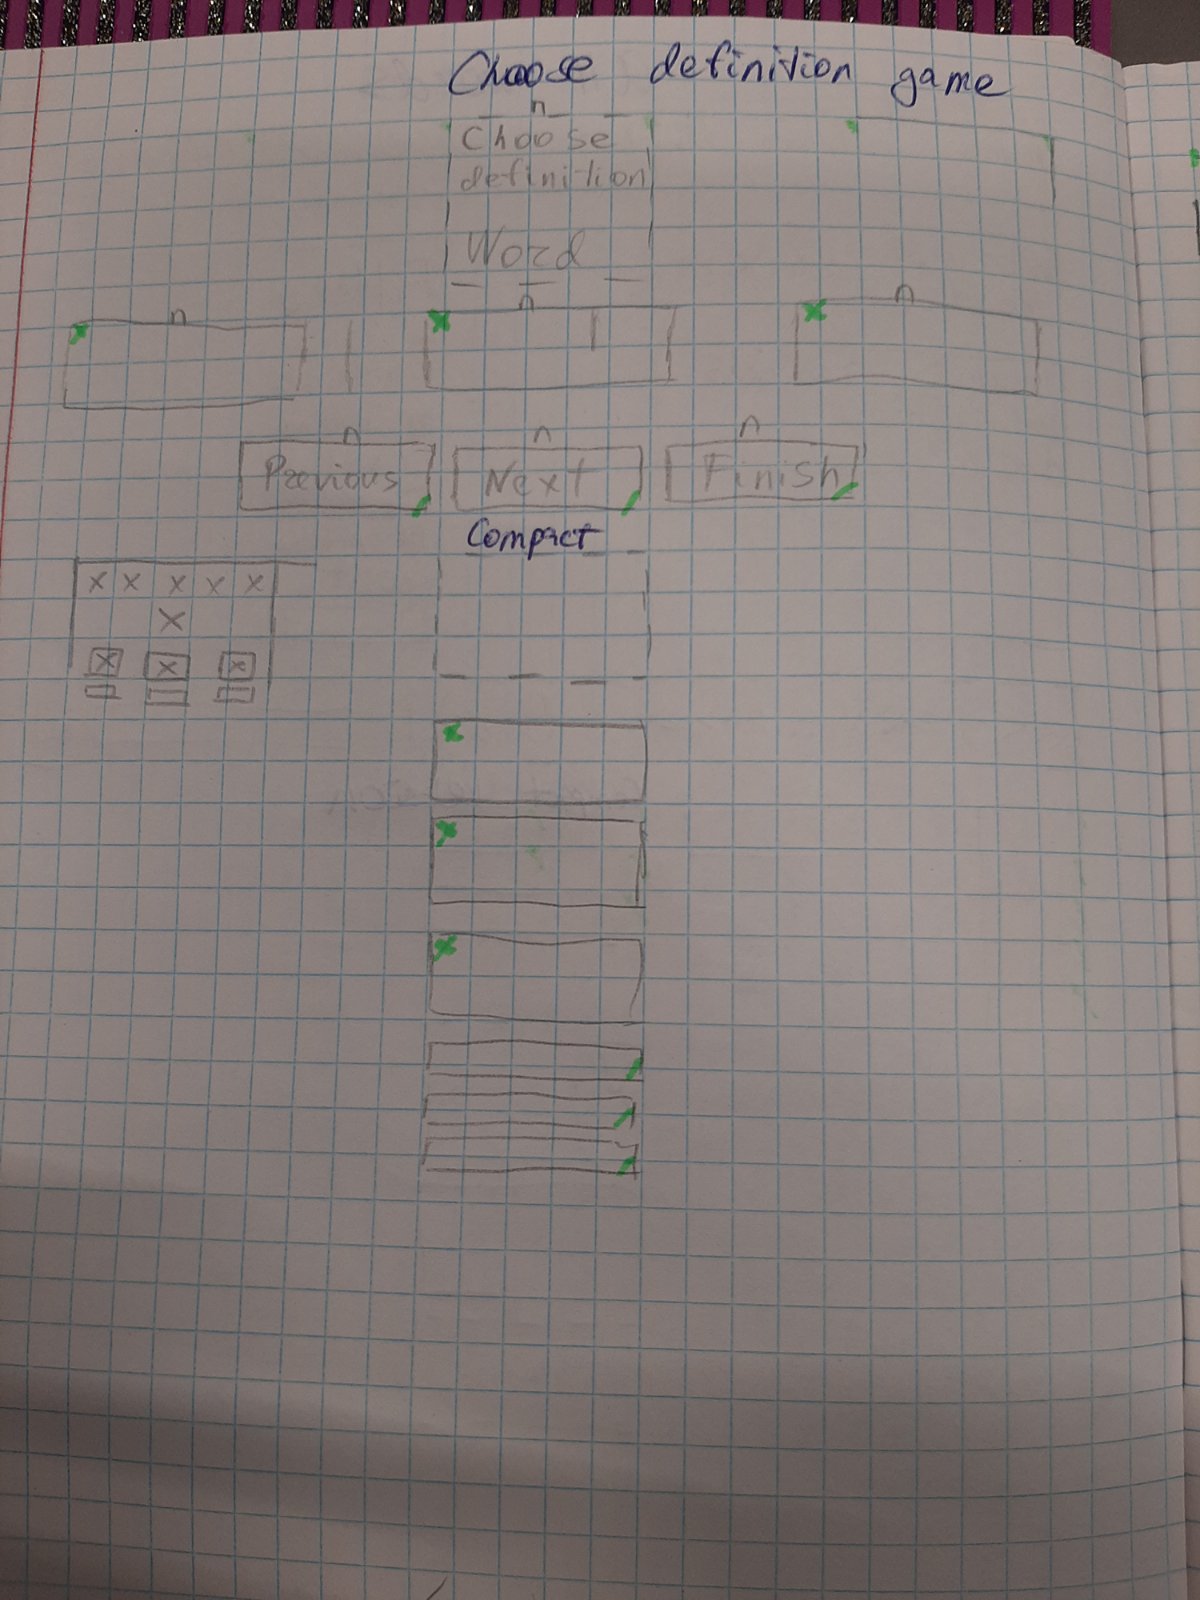 Choose definition game
n
Choose
definition
Word
n n n
n n n
Previous Next Finish
Compact
x x x x x
x
x x x